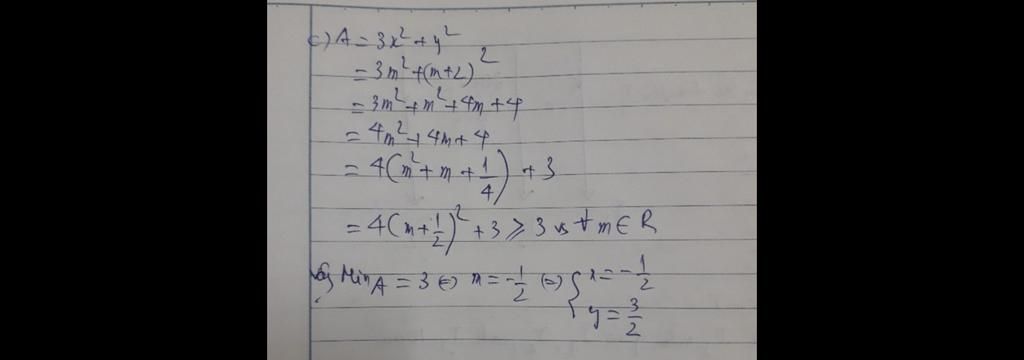 c) A = 3x² + y²
= 3m² + (m+2)²
= 3m² + m² + 4m + 4
= 4m² + 4m + 4
= 4(m² + m + 1/4) + 3
= 4(m + 1/2)² + 3 ≥ 3 vs ∀ m ∈ R
Min A = 3 ⇔ m = -1/2 ⇔ { x = -1/2
y = 3/2